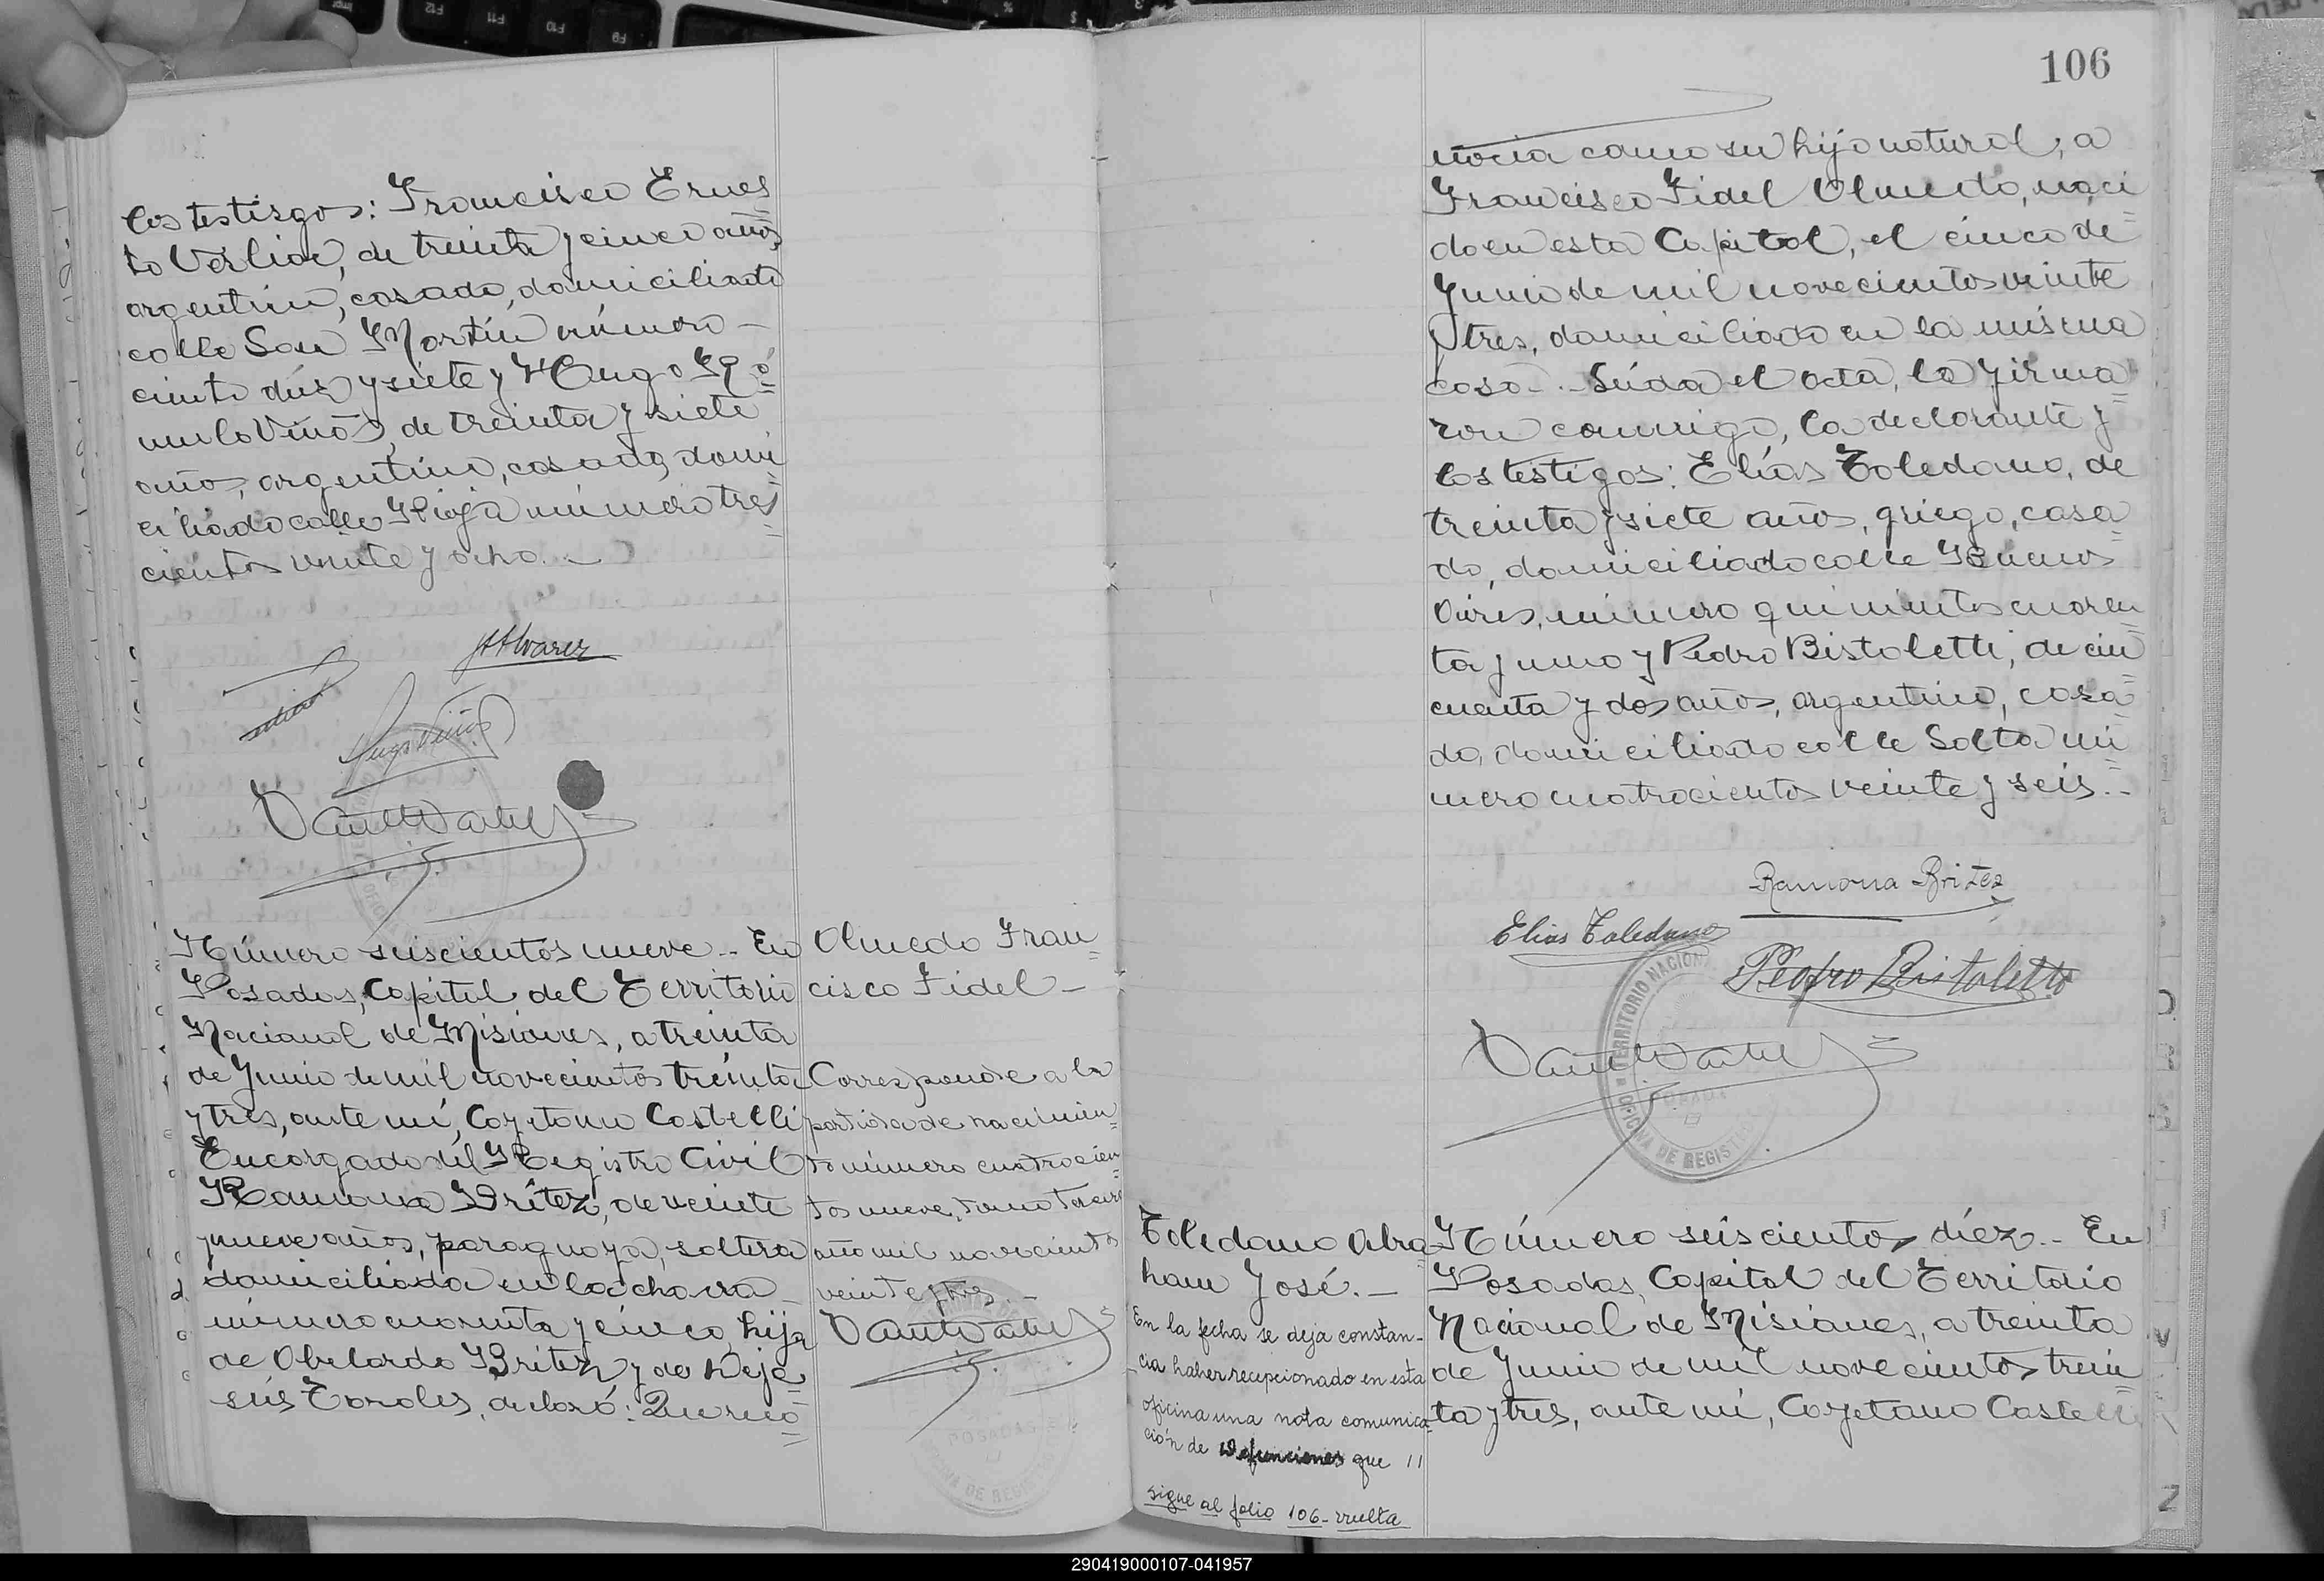 los testigos: Francisco Ernes
to Verliac, de treinta y cinco años,
argentino, casado, domiciliado
calle San Martín número
ciento diez y siete y Hugo Ró
mulo Viñas, de treinta y siete
años, argentino, casado, domi
ciliado calle Rioja número tres
cientos veinte y ocho.-
JAlvarez
Hugo Viñas
Número seiscientos nueve.- En
Posadas, Capital del Territorio
Nacional de Misiones, a treinta
de Junio de mil novecientos treinta
y tres, ante mí, Cayetano Castelli
Encargado del Registro Civil
Ramona Brítez, de veinte
y nueve años, paraguaya, soltera
domiciliada en la chacra
número cuarenta y cinco, hija
de Abelardo Britez y de Deje
sús Torales, declaró: Que reco
Olmedo Fran
cisco Fidel -
Corresponde a la
partida de nacimien
to número cuatrocien
tos nueve, tomo tercero
año mil novecientos
veinte y tres.-
106
nocía como su hijo natural, a
Francisco Fidel Olmedo, naci
do en esta Capital, el cinco de
Junio de mil novecientos veinte
y tres, domiciliado en la misma
casa.- Leída el acta, la firma
ron conmigo, la declarante y
los testigos: Elías Toledano, de
treinta y siete años, griego, casa
do, domiciliado calle Buenos
Aires, número quinientos cuaren
ta y uno y Pedro Bistoletti, de cin
cuenta y dos años, argentino, casa
do, domiciliado calle Salta nú
mero cuatrocientos veinte y seis.-
Ramona Britez
Elias Toledano
Pedro Bistoletti
TERRITORIO NACIONAL
POSADAS
OFICINA DE REGISTRO
Toledano Abra
ham José.-
En la fecha se deja constan-
cia haber recepcionado en esta
oficina una nota comunica
ción de Defunciones que //
sigue al folio 106- vuelta
Número seiscientos diéz.- En
Posadas, Capital del Territorio
Nacional de Misiones, a treinta
de Junio de mil novecientos trein
ta y tres, ante mí, Cayetano Castelli
290419000107-041957